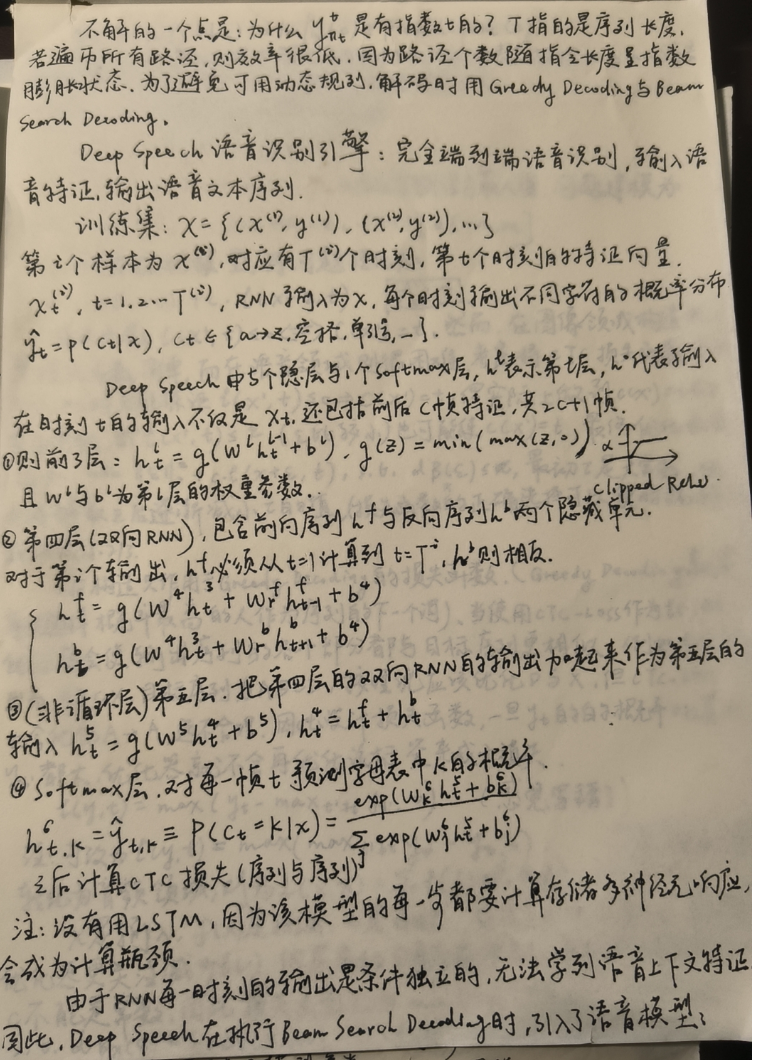 不解的一个点是:为什么 y^t_{πt} 是有指数t的? T指的是序列长度.
若遍历所有路径,则效率很低.因为路径个数随指令长度呈指数
膨胀状态.为了避免可用动态规划.解码时用Greedy Decoding与Beam
Search Decoding.
Deep Speech 语音识别引擎:完全端到端语音识别,输入语
音特征,输出语音文本序列.
训练集: X = {(x^(1), y^(1)), (x^(2), y^(2)), ...}
第i个样本为x^(i),对应有T^(i)个时刻,第t个时刻的特征向量.
x_t^(i), t=1.2...T^(i), RNN输入为x,每个时刻输出不同字符的概率分布
ŷt = p(ct|x), ct ∈ {a→z,空格,单引号, _ }.
Deep Speech由5个隐层与1个softmax层, h^l表示第l层, h^0代表输入
在时刻t的输入不仅是 xt,还包括前后C帧特征,共2C+1帧.
①则前3层: h_t^l = g(W^l h_t^{l-1} + b^l). g(z) = min(max(z,0)) α
且W^l与b^l为第l层的权重参数. Clipped Relu.
②第四层(双向RNN),包含前向序列h^f与反向序列h^b两个隐藏单元.
对于第i个输出, h^f必须从t=1计算到 t=T^i, h^b则相反.
{ h_t^f = g(W^4 h_t^3 + W_r^f h_{t-1}^f + b^4)
h_t^b = g(W^4 h_t^3 + W_r^b h_{t+1}^b + b^4)
③(非循环层)第五层.把第四层的双向RNN的输出加起来作为第五层的
输入 h_t^5 = g(W^5 h_t^4 + b^5), h_t^4 = h_t^f + h_t^b
④Softmax层.对每一帧t预测字母表中K的概率.
h_{t,k}^6 = ŷ_{t,k} ≡ P(ct=k|x) = exp(W_k^6 h_t^5 + b_k^6) / Σ_j exp(W_j^6 h_t^5 + b_j^6)
之后计算CTC损失(序列与序列)
注:没有用LSTM,因为该模型的每一步都要计算存储多神经元响应,
会成为计算瓶颈.
由于RNN每一时刻的输出是条件独立的,无法学到语音上下文特征
因此, Deep Speech在执行Beam Search Decoding时,引入了语音模型;